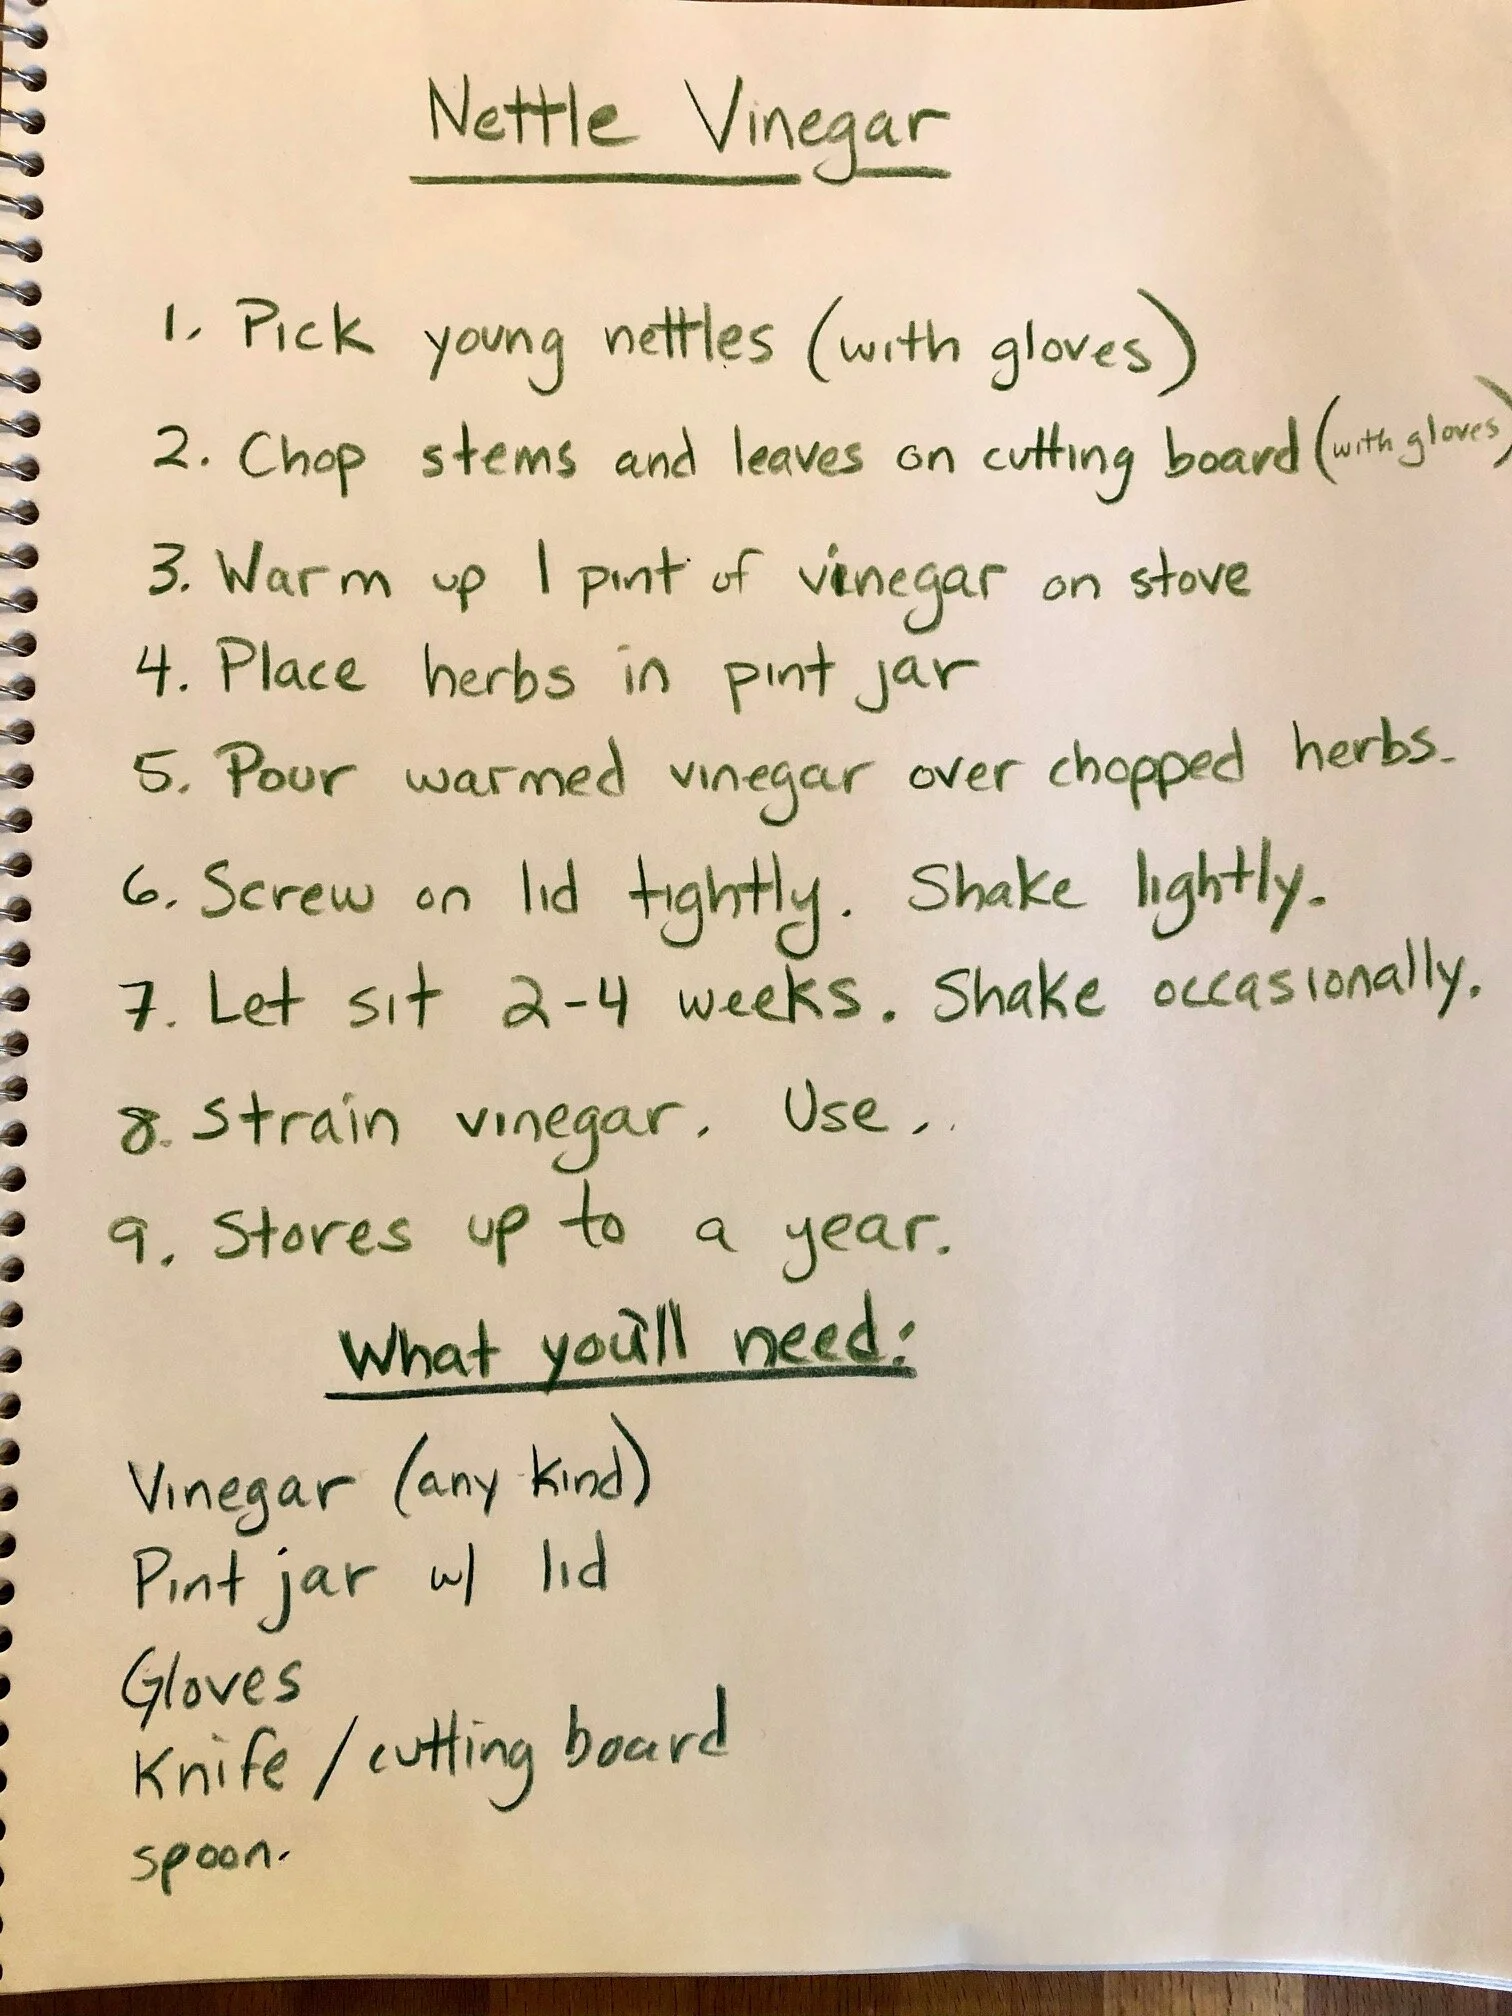 Nettle Vinegar
1. Pick young nettles (with gloves)
2. Chop stems and leaves on cutting board (with gloves)
3. Warm up 1 pint of vinegar on stove
4. Place herbs in pint jar
5. Pour warmed vinegar over chopped herbs.
6. Screw on lid tightly. Shake lightly.
7. Let sit 2-4 weeks. Shake occasionally.
8. Strain vinegar. Use..
9. Stores up to a year.
What you'll need:
Vinegar (any kind)
Pint jar w/ lid
Gloves
Knife / cutting board
spoon.